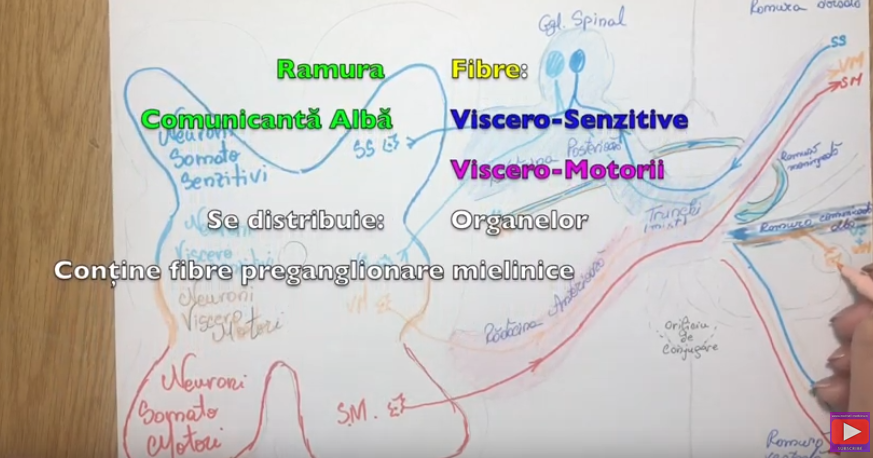 Romura dorsală
Ggl. Spinal
SS
VM
SM
Ramura Fibre:
Comunicantă Albă Viscero-Senzitive
Viscero-Motorii
Se distribuie: Organelor
Conține fibre preganglionare mielinice
Neuroni
Somato
Senzitivi
SS
Posterioară
Romură
meningeală
Trunchi
Romura comunicantă
albă
Viscero
VM
Neuroni
Viscero
Motori
Rădăcina Anterioară
Orificiu
de
conjugare
Neuroni
Somato
Motori
S.M.
Romura
SUBSCRIBE